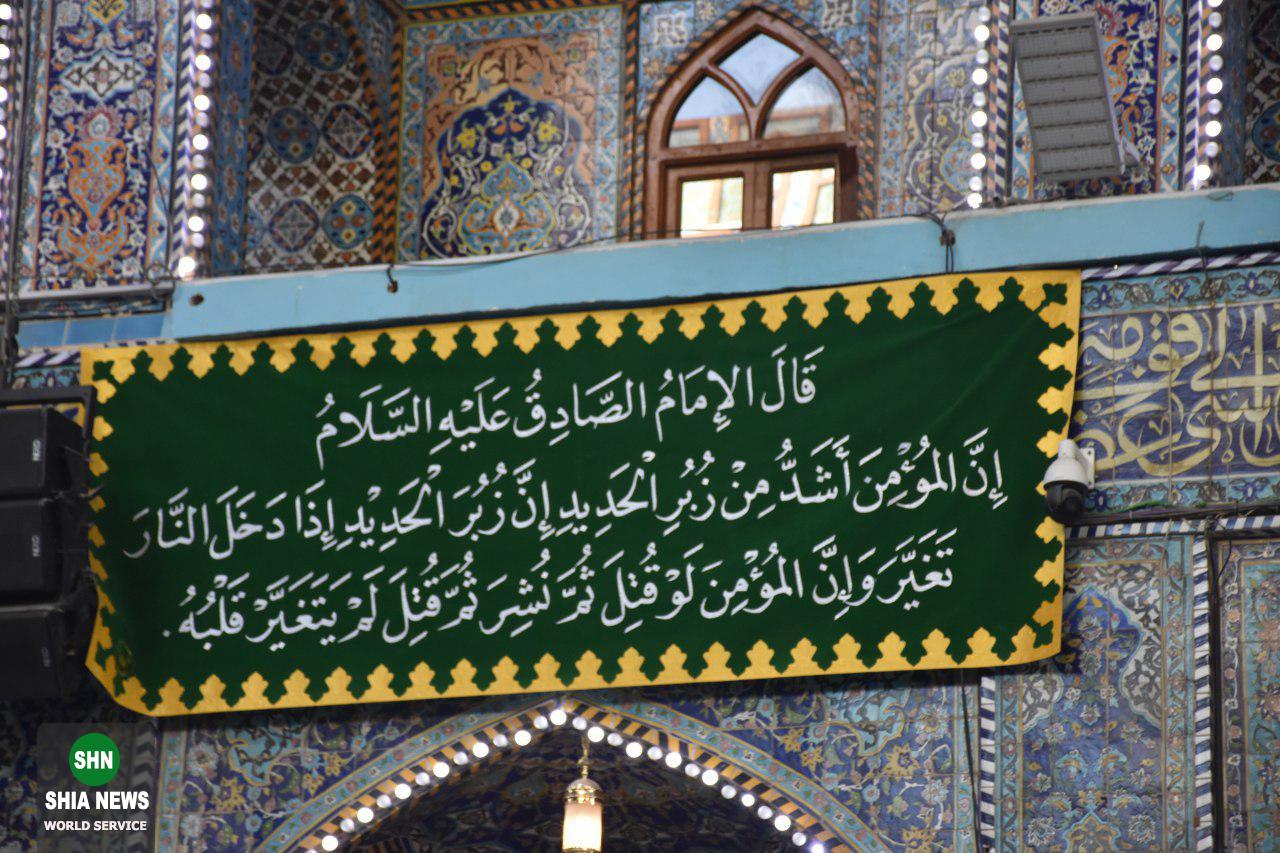 قَالَ الإِمَامُ الصَّادِقُ عَلَيْهِ السَّلَامُ
إِنَّ المُؤْمِنَ أَشَدُّ مِنْ زُبُرِ الْحَدِيدِ إِنَّ زُبُرَ الْحَدِيْدِ إِذَا دَخَلَ النَّارَ
تَغَيَّرَ وَإِنَّ المُؤْمِنَ لَوْ قُتِلَ ثُمَّ نُشِرَ ثُمَّ قُتِلَ لَمْ يَتَغَيَّرْ قَلْبُهُ.
SHN
SHIA NEWS
WORLD SERVICE